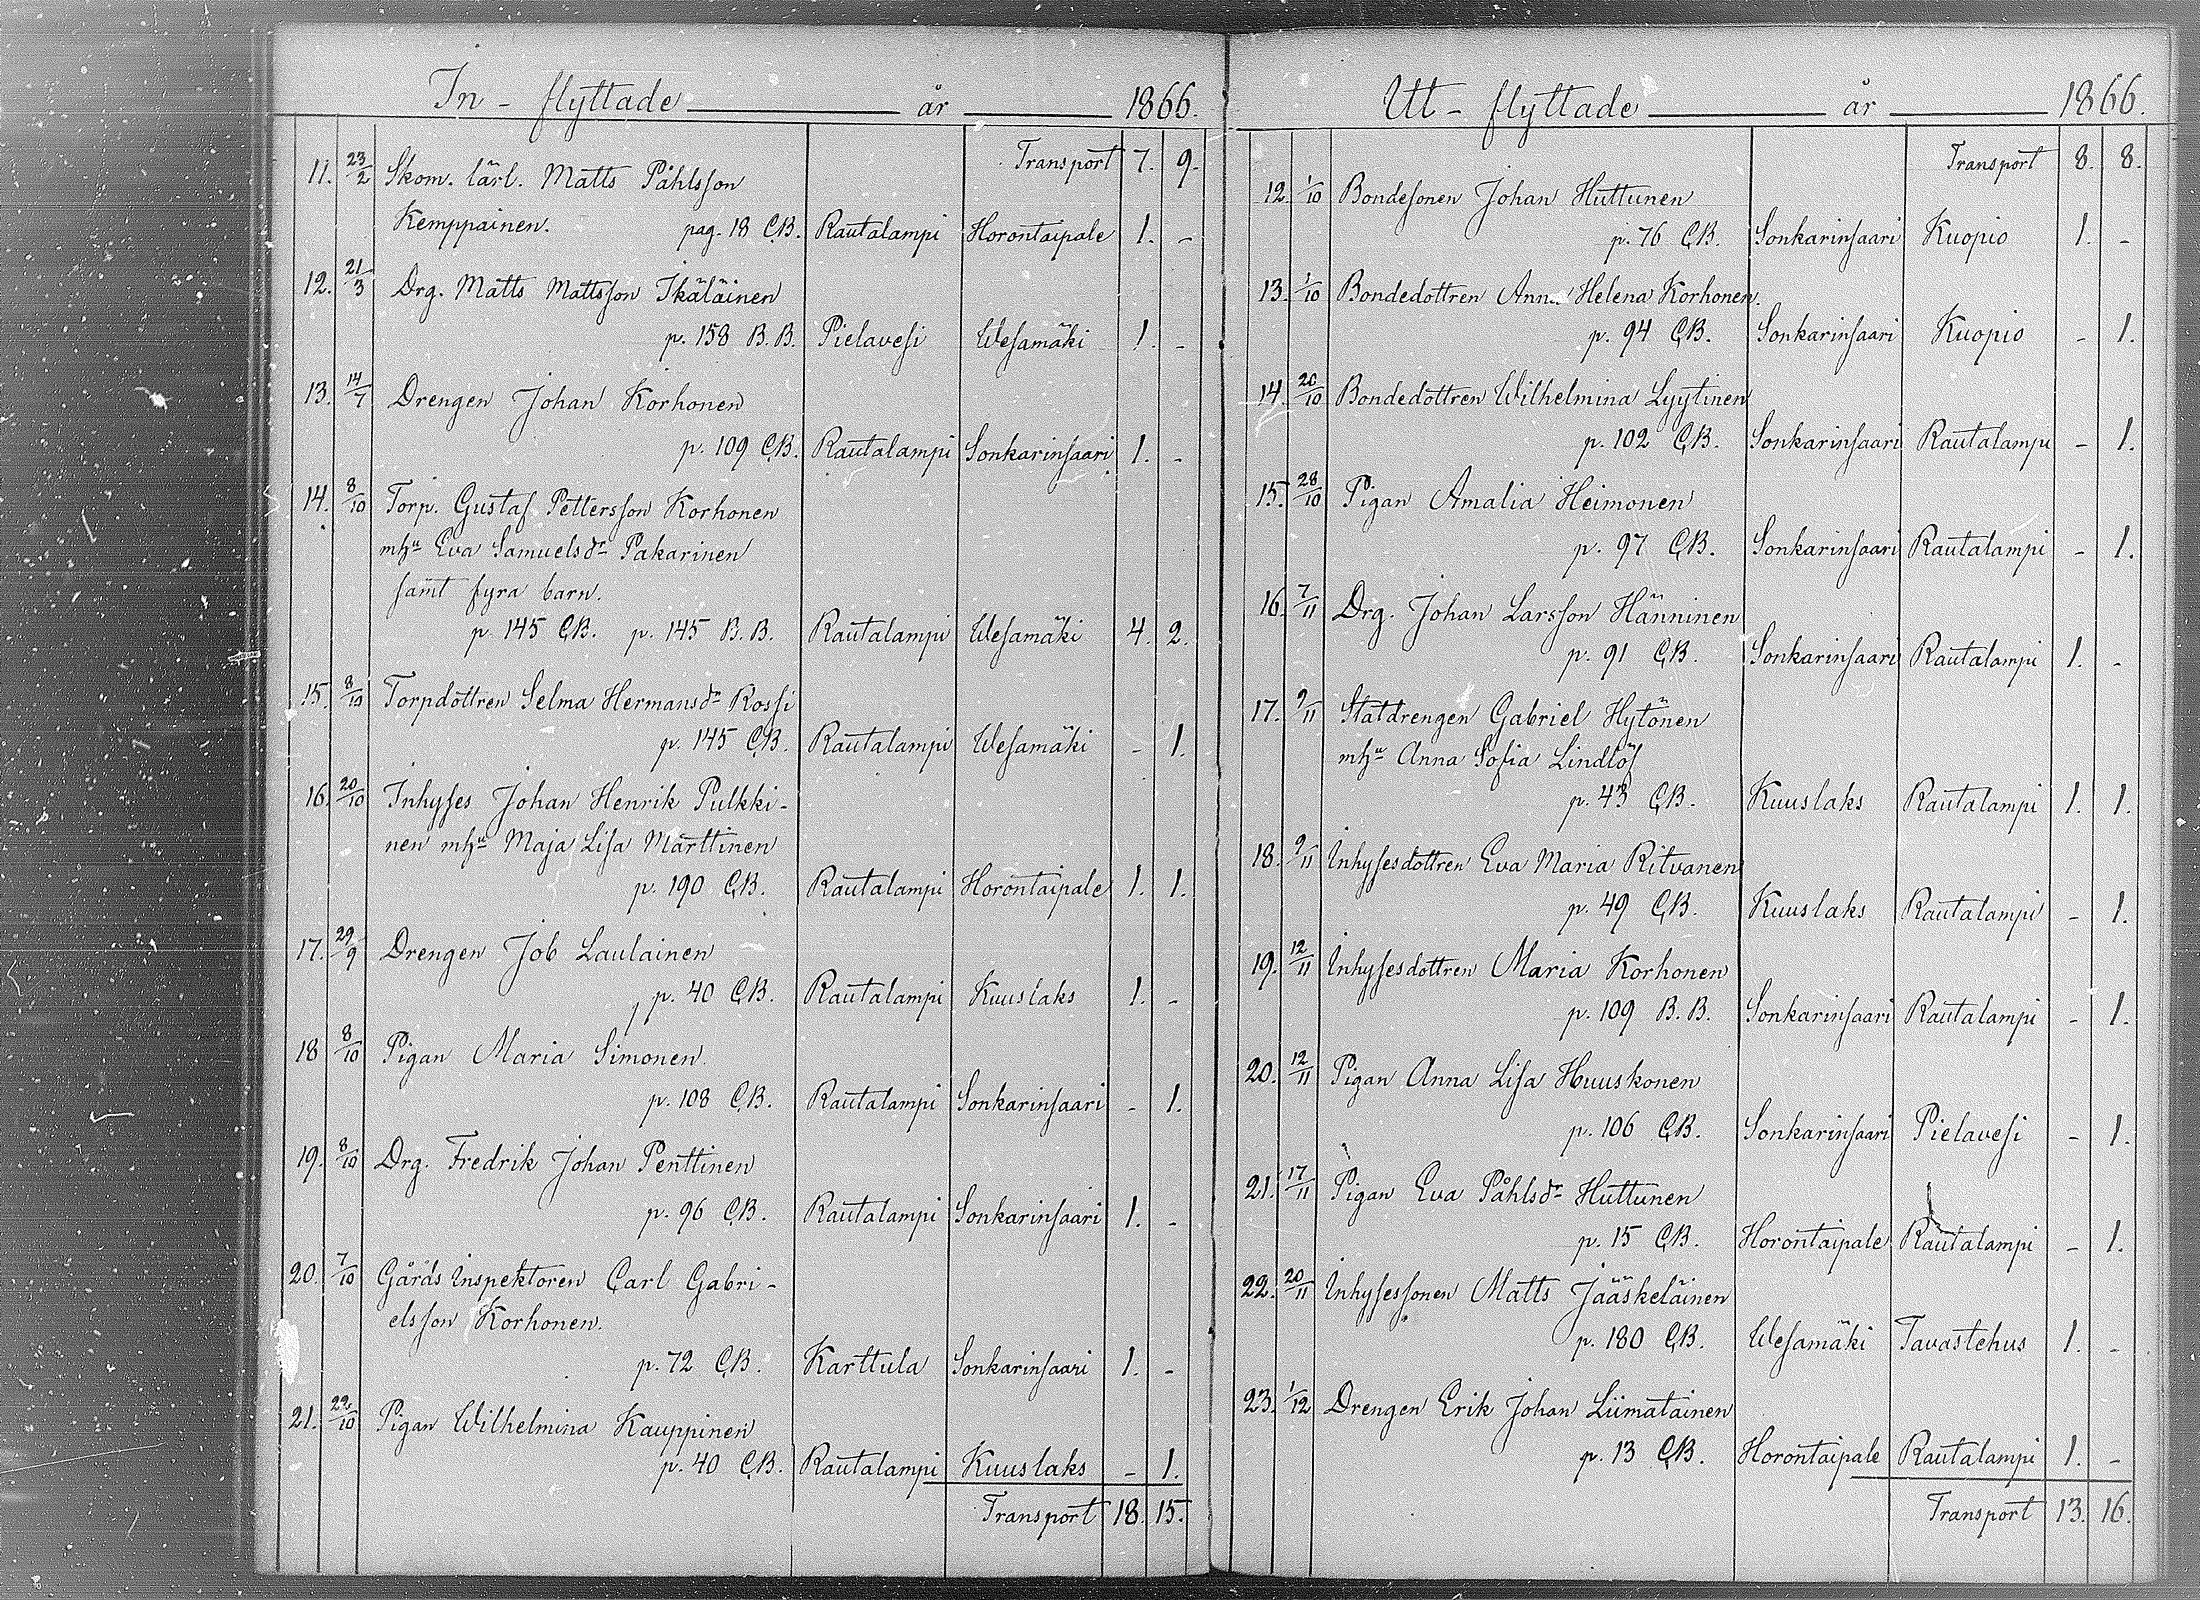 In - flyttade år 1866.
Transport 7. 9.
11. 23/2 Skom. lärl. Matts Påhlsson
Kemppainen. pag. 18 C.B. Rautalampi Horontaipale 1. -
12. 21/3 Drg. Matts Mattsson Ikäläinen
p. 158 B.B. Pielavesi Wesamäki 1. -
13. 14/7 Drengen Johan Korhonen
p. 109 C.B. Rautalampi Sonkarinsaari 1. -
14. 8/10 Torp. Gustaf Pettersson Korhonen
mhu Eva Samuelsdr Pakarinen
samt fyra barn.
p. 145 C.B. p. 145 B.B. Rautalampi Wesamäki 4. 2.
15. 8/10 Torpdottren Selma Hermansdr Rossi
p. 145 C.B. Rautalampi Wesamäki - 1.
16. 20/10 Inhyses Johan Henrik Pulkki-
nen mhu Maja Lisa Marttinen
p. 190 C.B. Rautalampi Horontaipale 1. 1.
17. 29/9 Drengen Job Laulainen
p. 40 C.B. Rautalampi Kuuslaks 1. -
18 8/10 Pigan Maria Simonen.
p. 108 C.B. Rautalampi Sonkarinsaari - 1.
19. 8/10 Drg. Fredrik Johan Penttinen
p. 96 C.B. Rautalampi Sonkarinsaari 1. -
20. 7/10 Gårds Inspektoren Carl Gabri-
elsson Korhonen.
p. 72 C.B. Karttula Sonkarinsaari 1. -
21. 22/10 Pigan Wilhelmina Kauppinen
p. 40 C.B. Rautalampi Kuuslaks - 1.
Transport 18. 15.
Utt - flyttade år 1866.
Transport 8. 8.
12. 1/10 Bondesonen Johan Huttunen
p. 76 C.B. Sonkarinsaari Kuopio 1. -
13. 1/10 Bondedottren Anna Helena Korhonen.
p. 94 C.B. Sonkarinsaari Kuopio - 1.
14. 20/10 Bondedottren Wilhelmina Lyytinen
p. 102 C.B. Sonkarinsaari Rautalampi - 1.
15. 28/10 Pigan Amalia Heimonen
p. 97 C.B. Sonkarinsaari Rautalampi - 1.
16. 7/11 Drg. Johan Larsson Hänninen
p. 91 C.B. Sonkarinsaari Rautalampi 1. -
17. 9/11 Statdrengen Gabriel Hytönen
mhu Anna Sofia Lindlöf
p. 43 C.B. Kuuslaks Rautalampi 1. 1.
18. 9/11 Inhysesdottren Eva Maria Ritvanen
p. 49 C.B. Kuuslaks Rautalampi - 1.
19. 12/11 Inhysesdottren Maria Korhonen
p. 109 B.B. Sonkarinsaari Rautalampi - 1.
20. 12/11 Pigan Anna Lisa Huuskonen
p. 106 C.B. Sonkarinsaari Pielavesi - 1.
21. 17/11 Pigan Eva Påhlsdr Huttunen
p. 15 C.B. Horontaipale Rautalampi - 1.
22. 20/11 Inhysessonen Matts Jääskeläinen
p. 180 C.B. Wesamäki Tavastehus 1. -
23. 1/12 Drengen Erik Johan Liimatainen
p. 13 C.B. Horontaipale Rautalampi 1. -
Transport 13. 16.